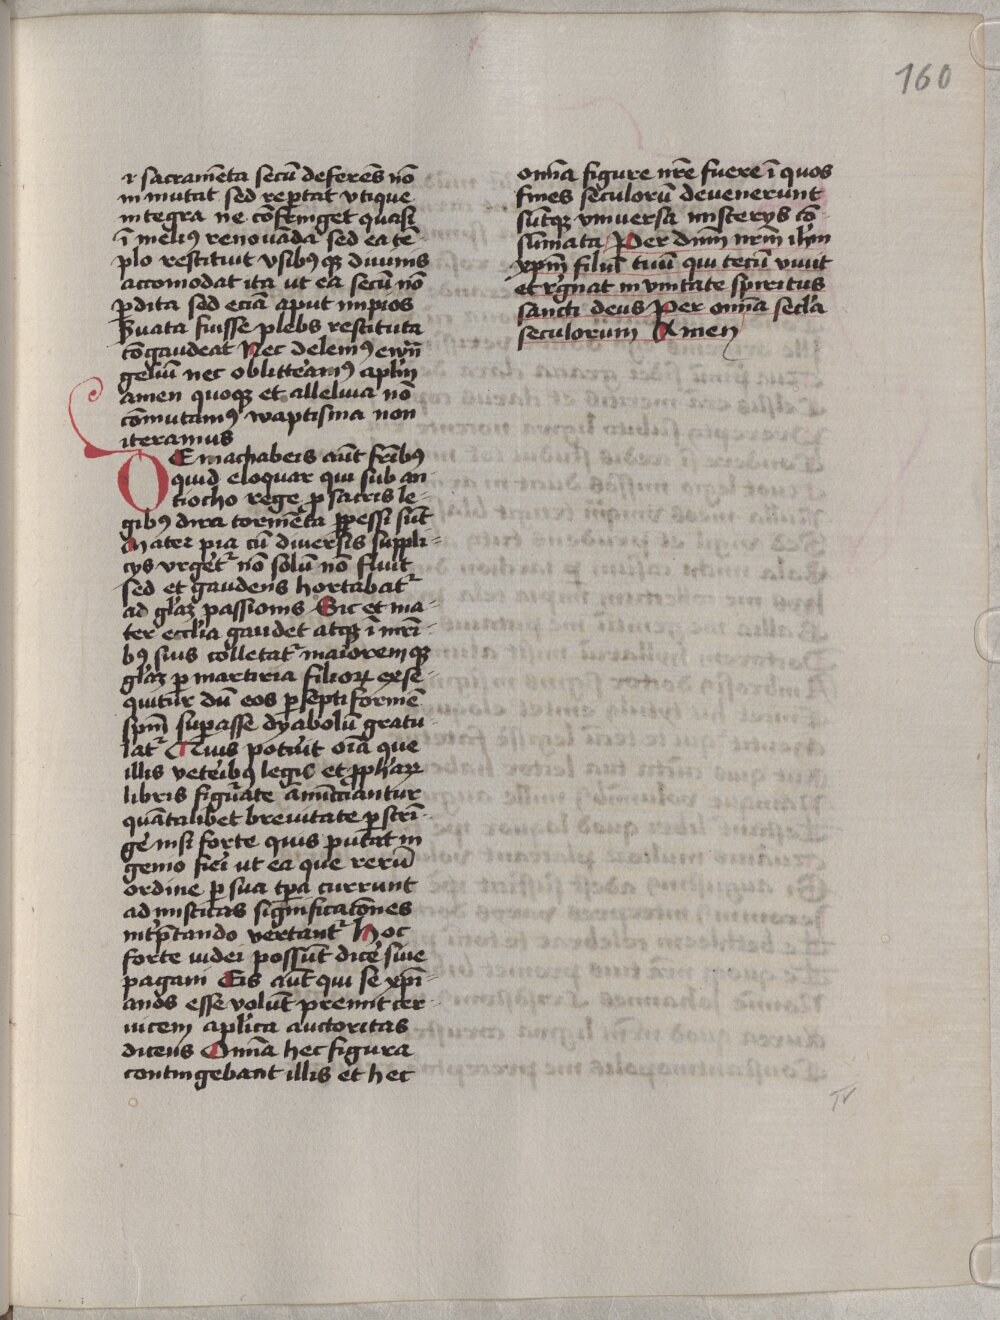 160
⁊ sacramēta secū deferēs nō
inmutat sed reptat vtique
integra ne cōfringet quasi
ī meliꝰ renouāda sed ea tē-
plo restituit vsibꝰ qꝫ diuinis
accomodat ita ut ea secū nō
ꝑdita sed eciā aput impios
ẜuata fuisse plebs restituta
cōgaudeat Nec delemꝰ ewn̄
geliū nec oblitteamꝰ apl̄m
amen quoqꝫ et alleluia nō
cōmutamꝰ waptisma non
iteramus
DE machabeis aūt fr̄ibꝰ
quid eloquar qui sub an
tiocho rege ꝑ sacris le-
gibꝰ dira tormēta ꝑpessi sūt
Mater pia cū diuersis suppli-
cijs vrget᷑ nō solū nō fluit
sed et gaudens hortabat᷑
ad gl̄aꝫ passionis Sic et ma-
ter eccl̄ia gaudet atqꝫ ī mr̄i-
bꝰ suis colletat᷑ maioremqꝫ
gl̄aꝫ ꝑ martiria filioꝝ exse-
quitur dū eos ꝑ septiformē
spm̄ supasse dyabolū gratu-
lat᷑ Quis potuit oīa que
illis veteibꝰ legis et ꝓphaꝝ
libris figuate ānūcciantur
quātalibet breuitate ꝑstri-
ge nisi forte quis putat in
genio fiei ut ea que rerū
ordine ꝑ sua tꝑa currunt
ad misticas significatōnes
intꝑtando vertant᷑ Hoc
forte uidei possūt dice siue
pagani Eis aūt qui se xp̄i-
anos esse volūt premit cer
uicem aplica auctoritas
dicens Om̄ia hec figura
contingebant illis et hec
om̄ia figure nr̄e fuere ī quos
fines seculorū deuenerunt
sūtqꝫ vniuersa misterijs cō-
sūmata Per dn̄m nr̄m ihm̄
xp̄m filiū tuū qui tecū viuit
et rᷓgnat in vnitate spiritus
sancti deus Per om̄ia secla
seculorum Amen